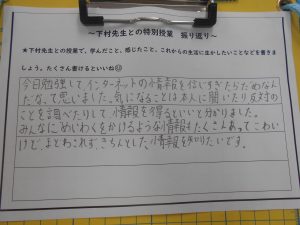 ～下村先生との特別授業 振り返り～
★下村先生との授業で、学んだこと、感じたこと、これからの生活に生かしたいことなどを書きま
しょう。たくさん書けるといいね☺
今日勉強して、インターネットの情報を信じすぎたらだめなん
だな、て思いました。気になることは本人に聞いたり反対の
ことを調べたりして、情報を得るといいと分かりました。
みんなにめいわくをかけるような情報もたくさんあってこわい
けど、まどわされず、きちんとした情報を知りたいです。